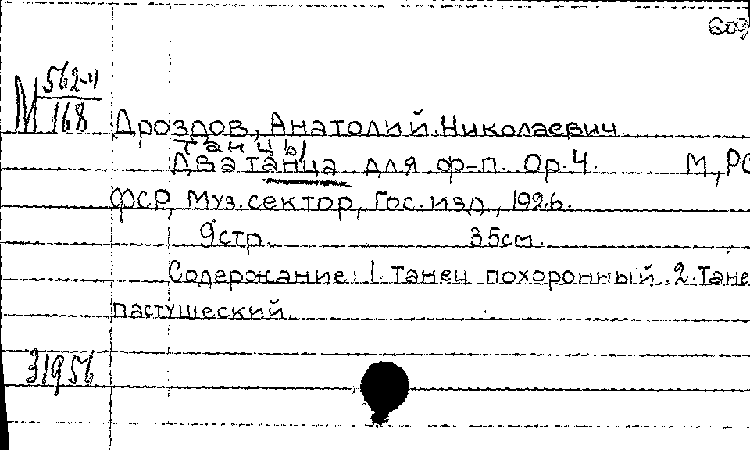 609
М 562-4
168
Дроздов, Анатолий Николаевич
Танцы
Два танца для ф-п. Op. 4. М., РС
ФСР, Муз. сектор, Гос. изд., 1926.
9 стр. 35 см.
Содержание: 1. Танец похоронный. 2. Тане
пастушеский.
31956